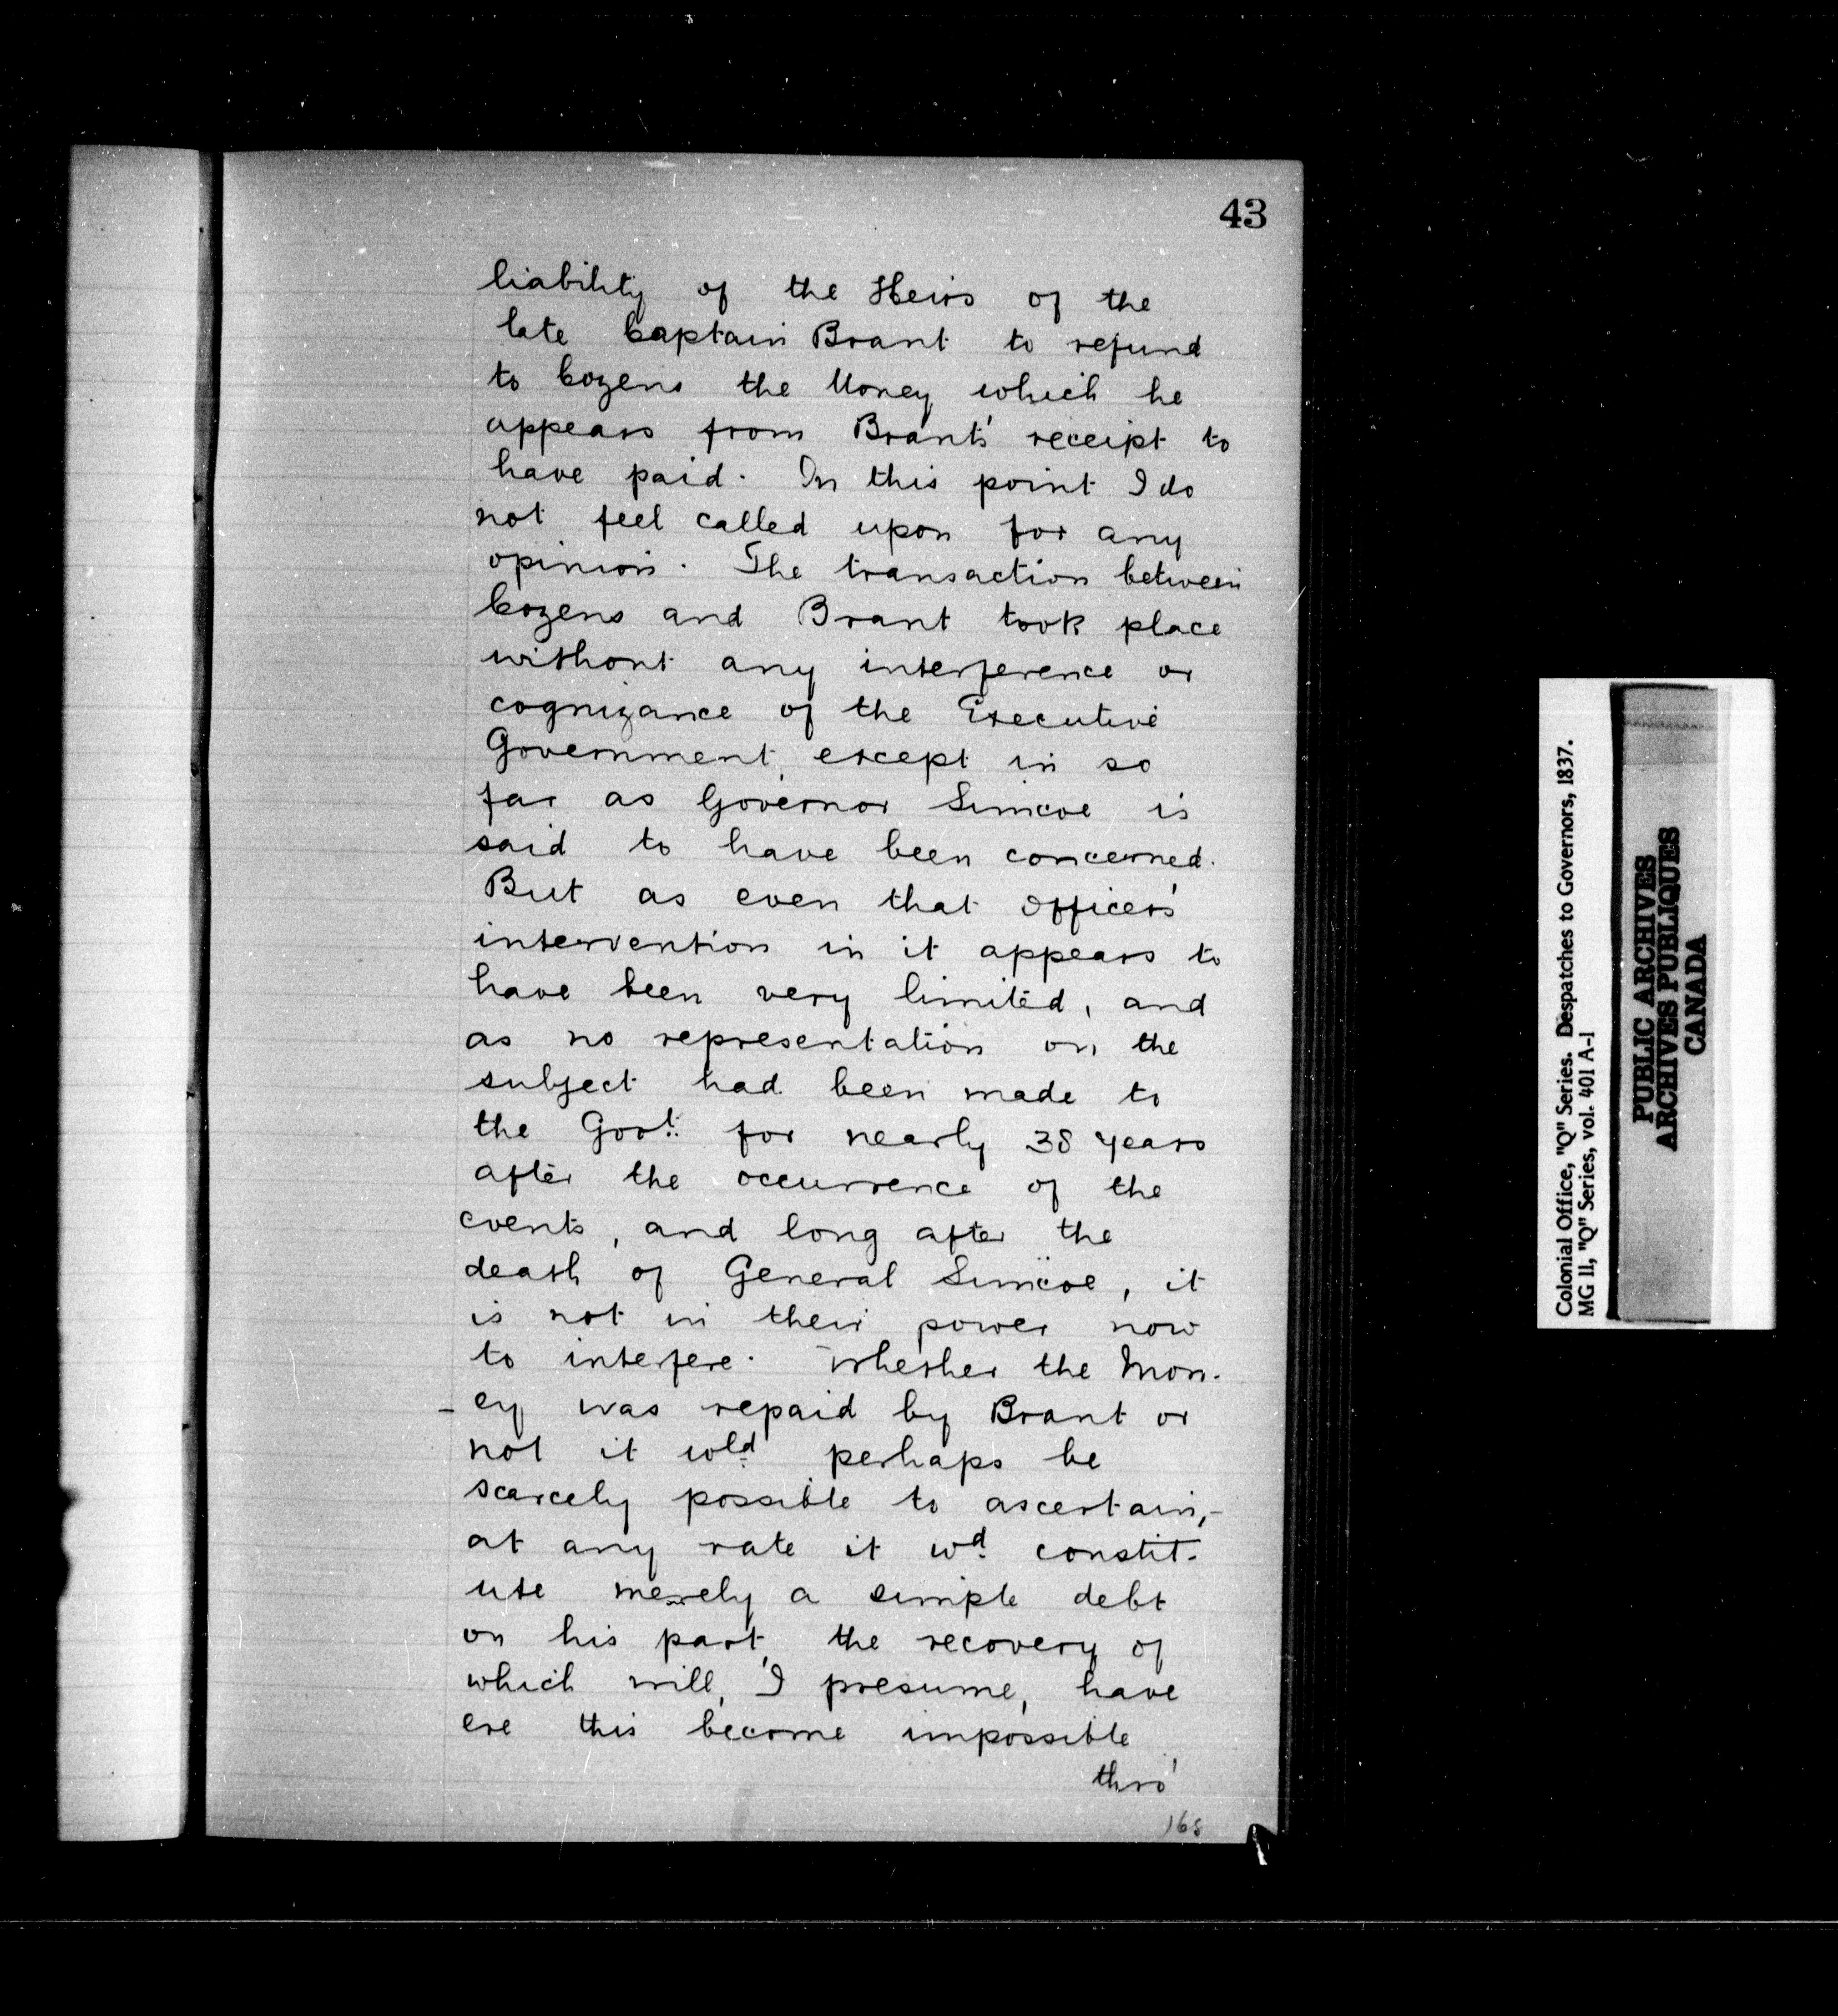 43
liability of the Heirs of the
late Captain Brant to refund
to Cozens the Money which he
appears from Brant's receipt to
have paid. In this point I do
not feel called upon for any
opinion. The transaction between
Cozens and Brant took place
without any interference or
cognizance of the Executive
Government, except in so
far as Governor Simcoe is
said to have been concerned.
But as even that officer's
intervention in it appears to
have been very limited, and
as no representation on the
subject had been made to
the Govt. for nearly 38 years
after the occurrence of the
events, and long after the
death of General Simcoe, it
is not in their power now
to interfere. Whether the Mon-
-ey was repaid by Brant or
not it wld. perhaps be
scarcely possible to ascertain,-
at any rate it wd. constit-
ute merely a simple debt
on his part, the recovery of
which will, I presume, have
ere this become impossible
thro'
168
Colonial Office, "Q" Series. Despatches to Governors, 1837.
MG 11, "Q" Series, vol. 401 A-1
PUBLIC ARCHIVES
ARCHIVES PUBLIQUES
CANADA